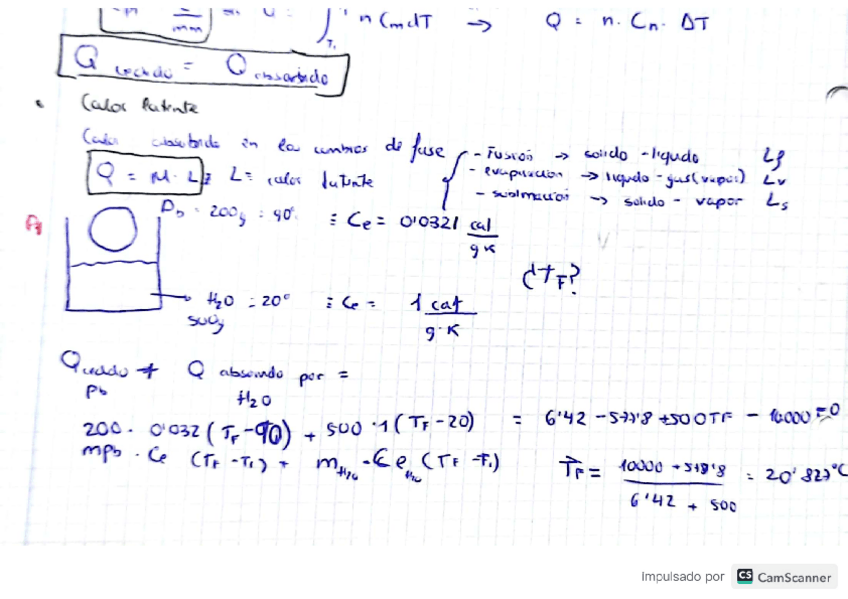 n Cm dT → Q = n · Cn · ΔT
mm
Q cedido = Q absorbido
• Calor latente
Calor absorbido en los cambios de fase
- Fusión → solido - liquido Lf
- evaporacion → liquido - gas (vapor) Lv
- sublimacion → solido - vapor Ls
Q = M · L L = calor latente
Pb : 200g : 90° : Ce = 0'0321 cal / g K
¿TF?
H2O : 20° : Ce = 1 cal / g · K
500g
Q cedido + Q absorvido por =
Pb H2O
200 · 0'032 (TF - 90) + 500 · 1 (TF - 20) = 6'42 - 577'8 + 500TF - 10000 = 0
mpb · Ce (TF - T1) + mH2O · Ce H2O (TF - T1)
TF = 10000 + 577'8 / 6'42 + 500 = 20'827°C
Impulsado por CS CamScanner